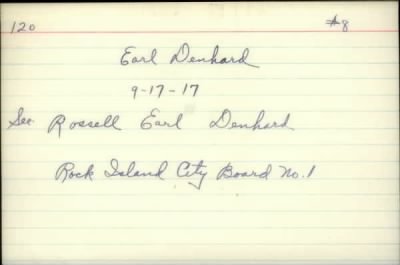 120 #8
Earl Denhard
9-17-17
See Rossell Earl Denhard
Rock Island City Board No. 1